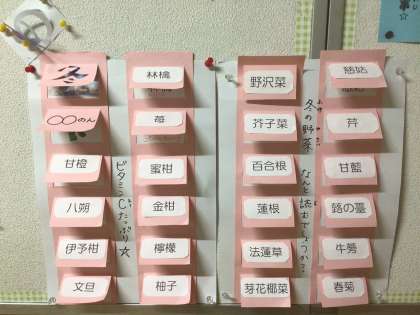 冬
甘橙
八朔
伊予柑
文旦
ビタミンCたっぷり☆
林檎
苺
蜜柑
金柑
檸檬
柚子
野沢菜
芥子菜
百合根
蓮根
法蓮草
芽花椰菜
冬の野菜 なんと読むでしょうか?
慈姑
芹
甘藍
蕗の薹
牛蒡
春菊